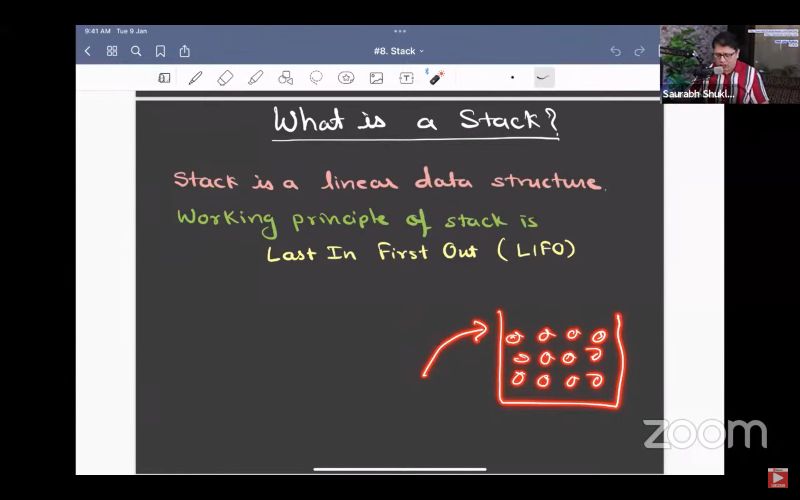 9:41 AM Tue 9 Jan
#8. Stack
Saurabh Shukl...
What is a Stack?
Stack is a linear data structure.
Working principle of stack is
Last In First Out (LIFO)
zoom